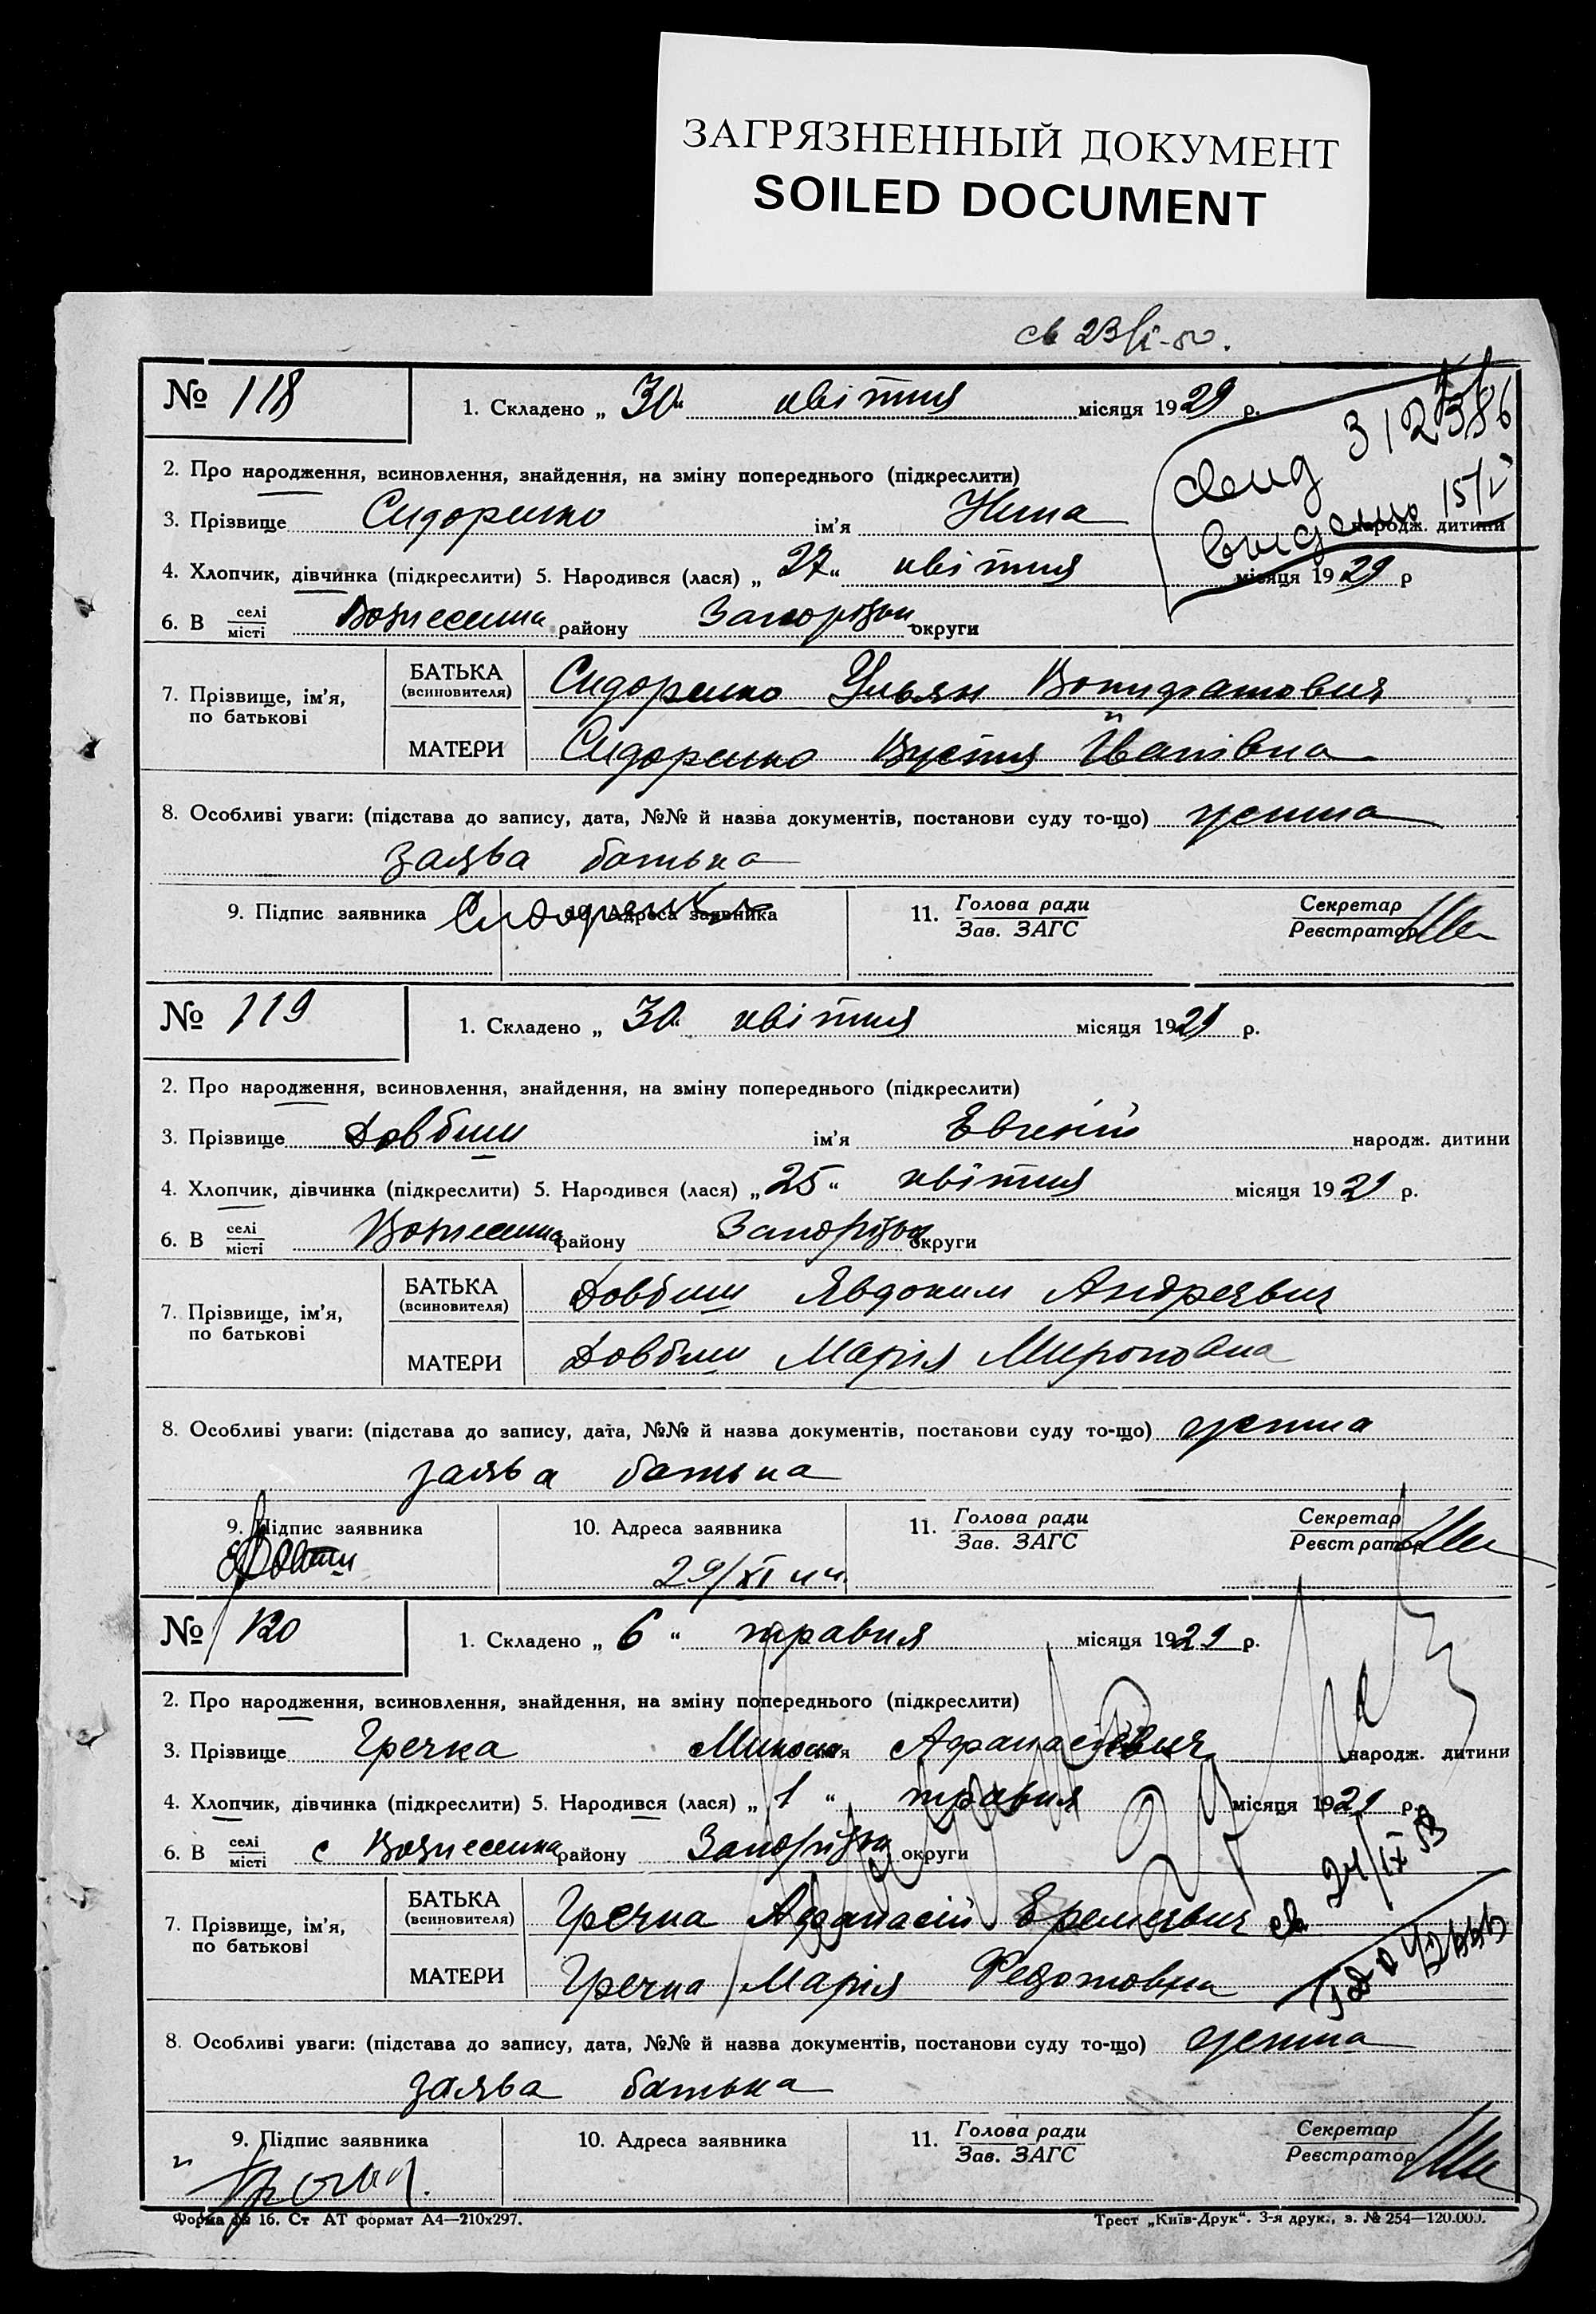 ЗАГРЯЗНЕННЫЙ ДОКУМЕНТ
SOILED DOCUMENT
№ 118
1. Складено „ 30 “ квітня місяця 1929 р.
2. Про народження, всиновлення, знайдення, на зміну попереднього (підкреслити)
3. Прізвище Сидоренко ім’я Нина народж. дитини
4. Хлопчик, дівчинка (підкреслити) 5. Народився (лася) „ 27 “ квітня місяця 1929 р
6. В селі місті Вознесенка району Запорізьк округи
7. Прізвище, ім’я, по батькові
БАТЬКА (всиновителя) Сидоренко Ульян
МАТЕРИ Сидоренко Вустя Іванівна
8. Особливі уваги: (підстава до запису, дата, №№ й назва документів, постанови суду то-що) усна
заява батька
9. Підпис заявника Сидоренко 10. Адреса заявника 11. Голова ради Зав. ЗАГС Секретар Реєстратор
№ 119
1. Складено „ 30 “ квітня місяця 1929 р.
2. Про народження, всиновлення, знайдення, на зміну попереднього (підкреслити)
3. Прізвище Довбиш ім’я Евгений народж. дитини
4. Хлопчик, дівчинка (підкреслити) 5. Народився (лася) „ 25 “ квітня місяця 1929 р.
6. В селі місті Вознесенка району Запорізьк округи
7. Прізвище, ім’я, по батькові
БАТЬКА (всиновителя) Довбиш Явдоким Андреевич
МАТЕРИ Довбиш Марія Мироновна
8. Особливі уваги: (підстава до запису, дата, №№ й назва документів, постанови суду то-що) усна
заява батька
9. Підпис заявника 10. Адреса заявника 11. Голова ради Зав. ЗАГС Секретар Реєстратор
№ 120
1. Складено „ 6 “ травня місяця 1929 р.
2. Про народження, всиновлення, знайдення, на зміну попереднього (підкреслити)
3. Прізвище Гречка Микола ім’я Афанасієвич народж. дитини
4. Хлопчик, дівчинка (підкреслити) 5. Народився (лася) „ 1 “ травня місяця 1929 р.
6. В селі місті с Вознесенка району Запорізьк округи
7. Прізвище, ім’я, по батькові
БАТЬКА (всиновителя) Гречка Афанасій Еремеевич
МАТЕРИ Гречка Марія Федотовна
8. Особливі уваги: (підстава до запису, дата, №№ й назва документів, постанови суду то-що) усна
заява батька
9. Підпис заявника 10. Адреса заявника 11. Голова ради Зав. ЗАГС Секретар Реєстратор
Форма № 16. Ст АТ формат А4—210х297. Трест „Київ-Друк“. 3-я друк., з. № 254—120.000.